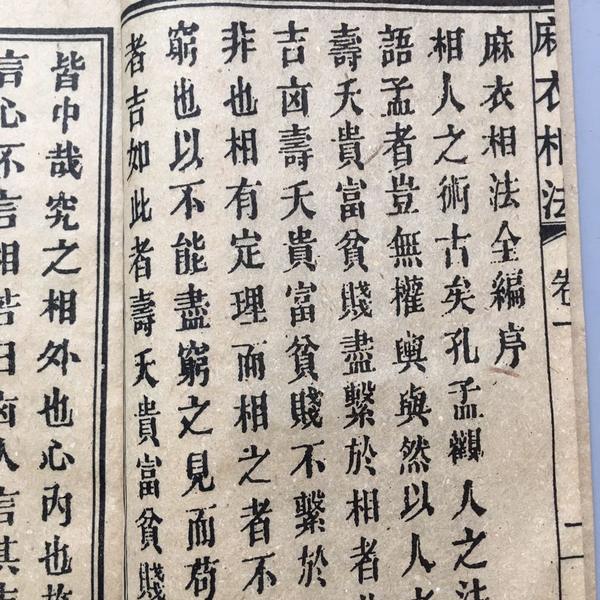 麻衣相法 卷一 二
麻衣相法全編序
相人之術古矣孔孟觀人之法
語孟者豈無權輿與然以人
壽夭貴富貧賤盡繫於相者
吉凶壽夭貴富貧賤不繫於
非也相有定理而相之者不
窮也以不能盡窮之見而苟
者吉如此者壽夭貴富貧賤
皆中哉究之相外也心內也
言心不言相若曰凶人言其